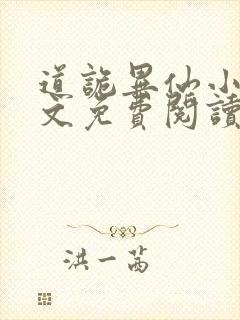 道詭異仙小
文免費閱讀
洪一茜